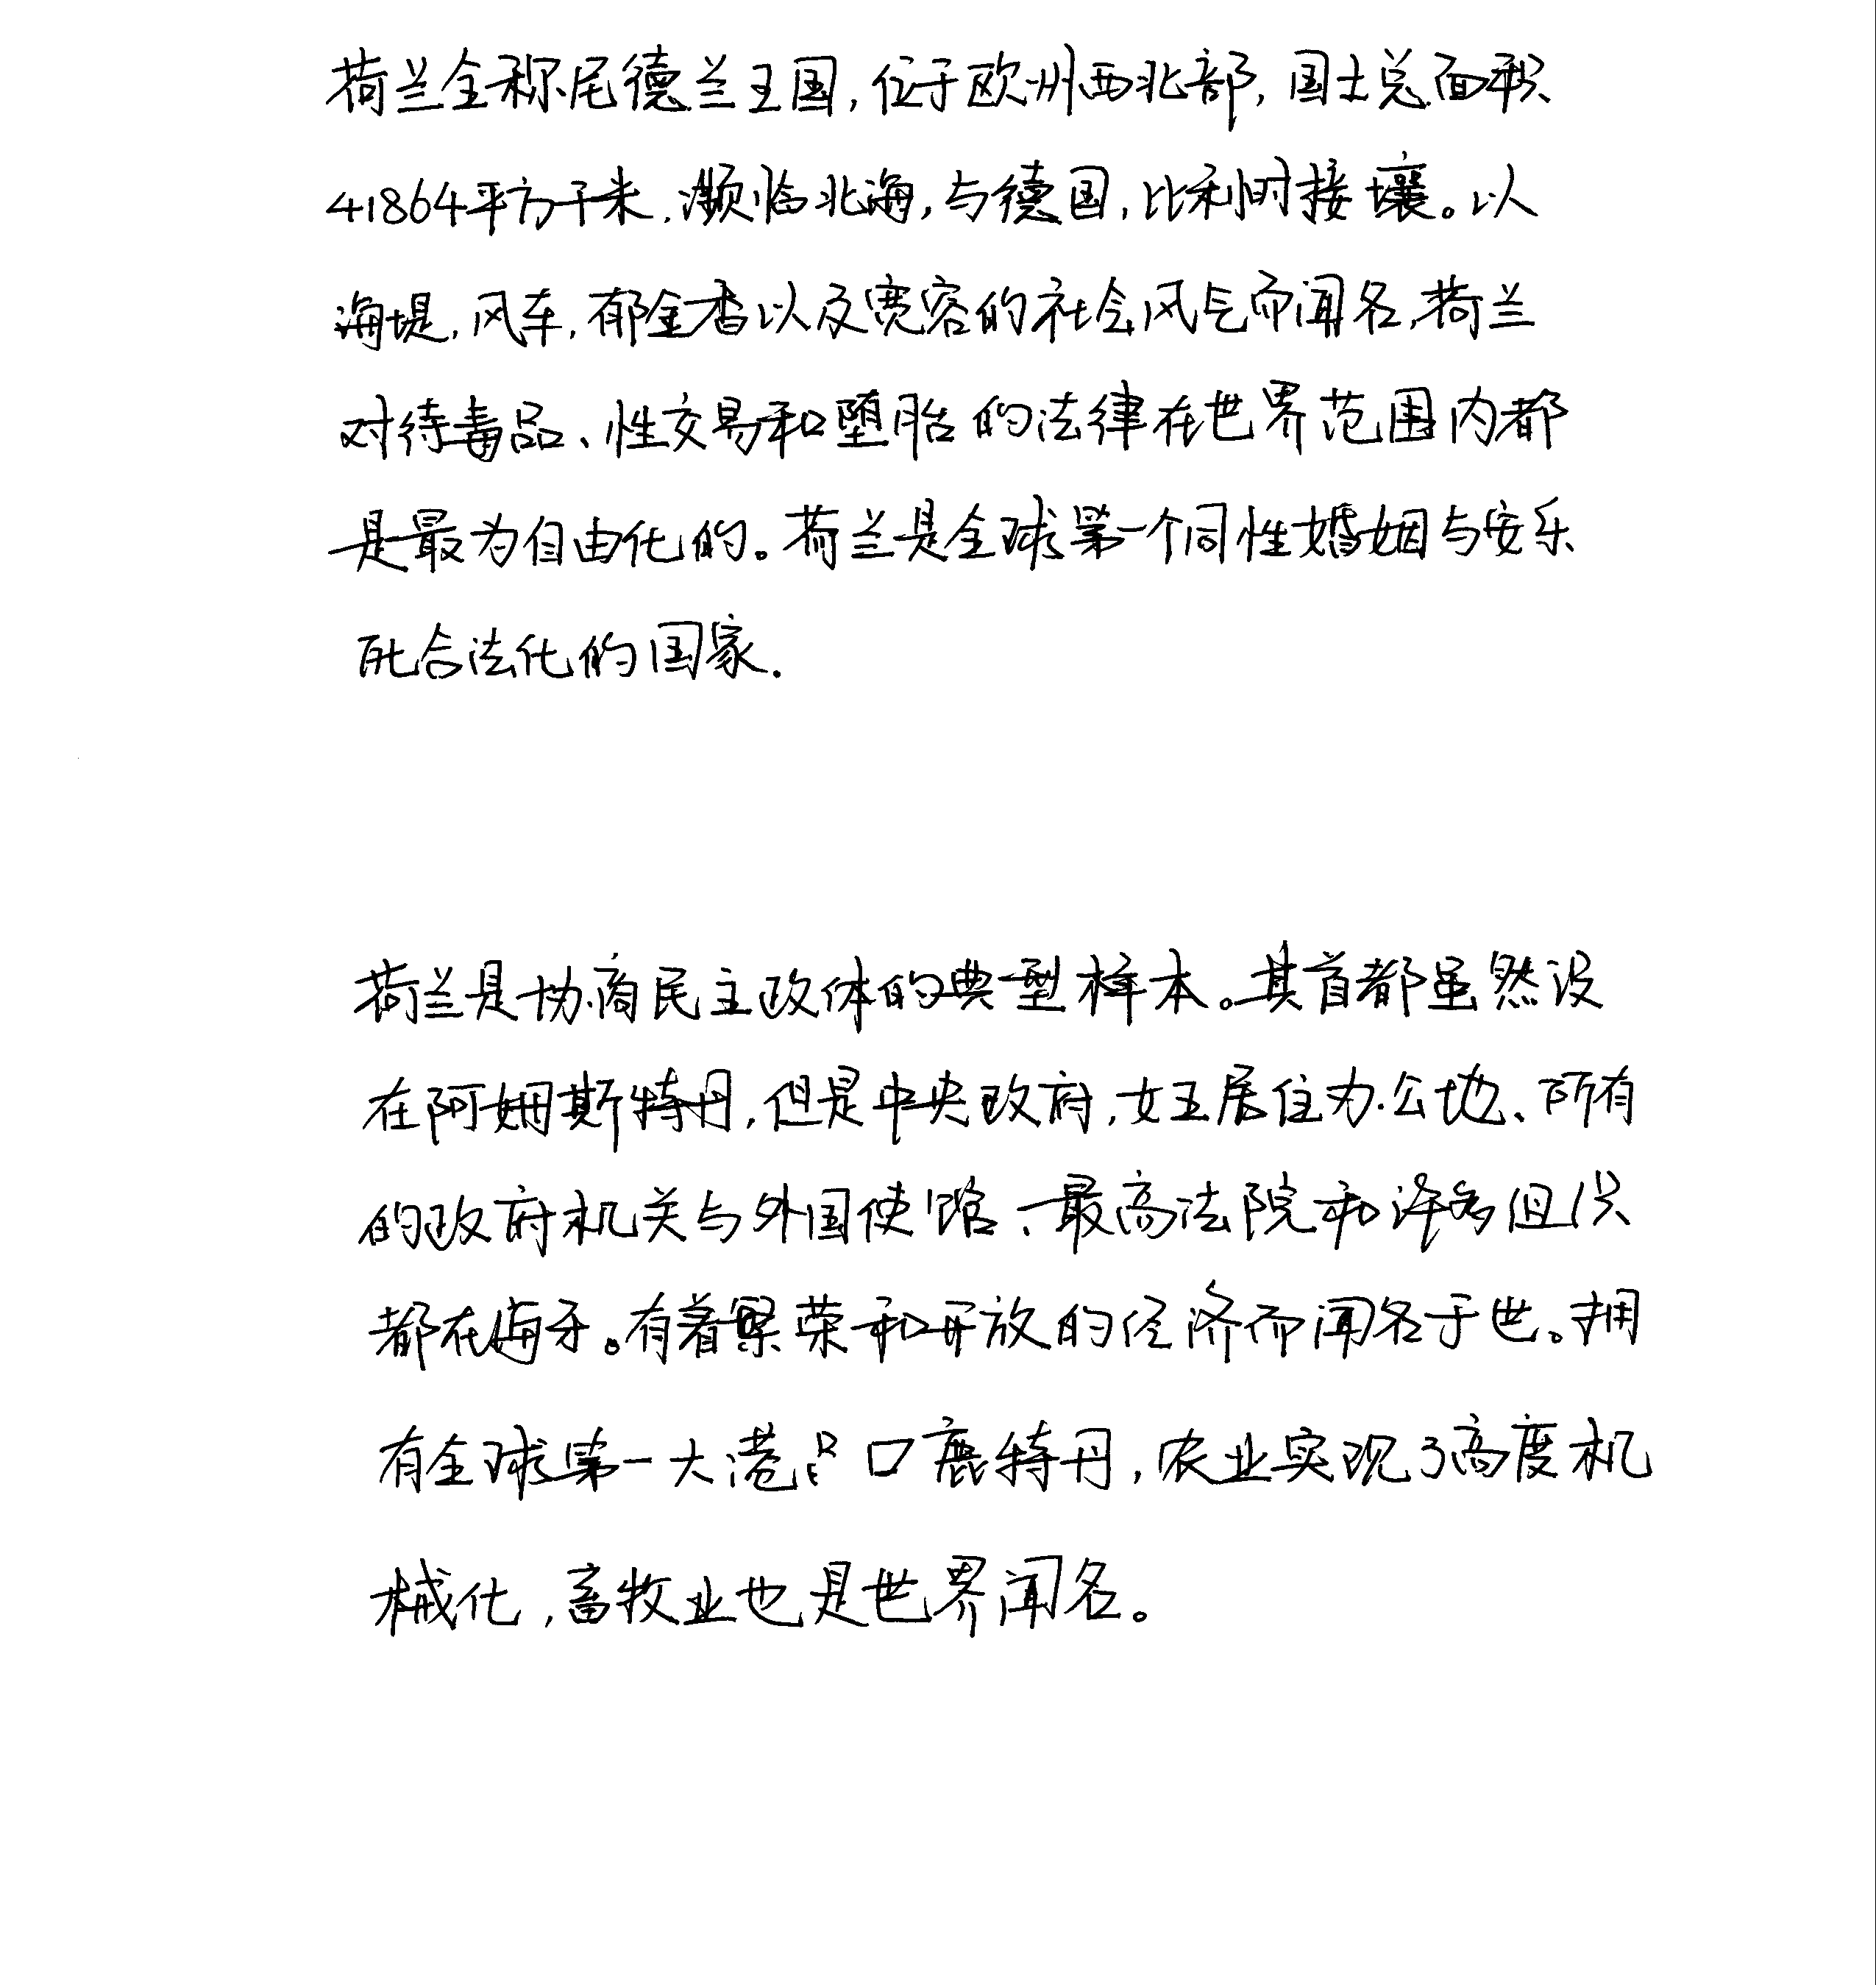 荷兰全称尼德兰王国,位于欧洲西北部,国土总面积
41864平方千米,濒临北海,与德国,比利时接壤。以
海堤,风车,郁金香以及宽容的社会风气而闻名,荷兰
对待毒品、性交易和堕胎的法律在世界范围内都
是最为自由化的。荷兰是全球第一个同性婚姻与安乐
死合法化的国家.
荷兰是协商民主政体的典型样本。其首都虽然设
在阿姆斯特丹,但是中央政府,女王居住办公地、所有
的政府机关与外国使馆、最高法院和许多组织
都在海牙。有着繁荣和开放的经济而闻名于世。拥
有全球第一大港口鹿特丹,农业实现了高度机
械化,畜牧业也是世界闻名。